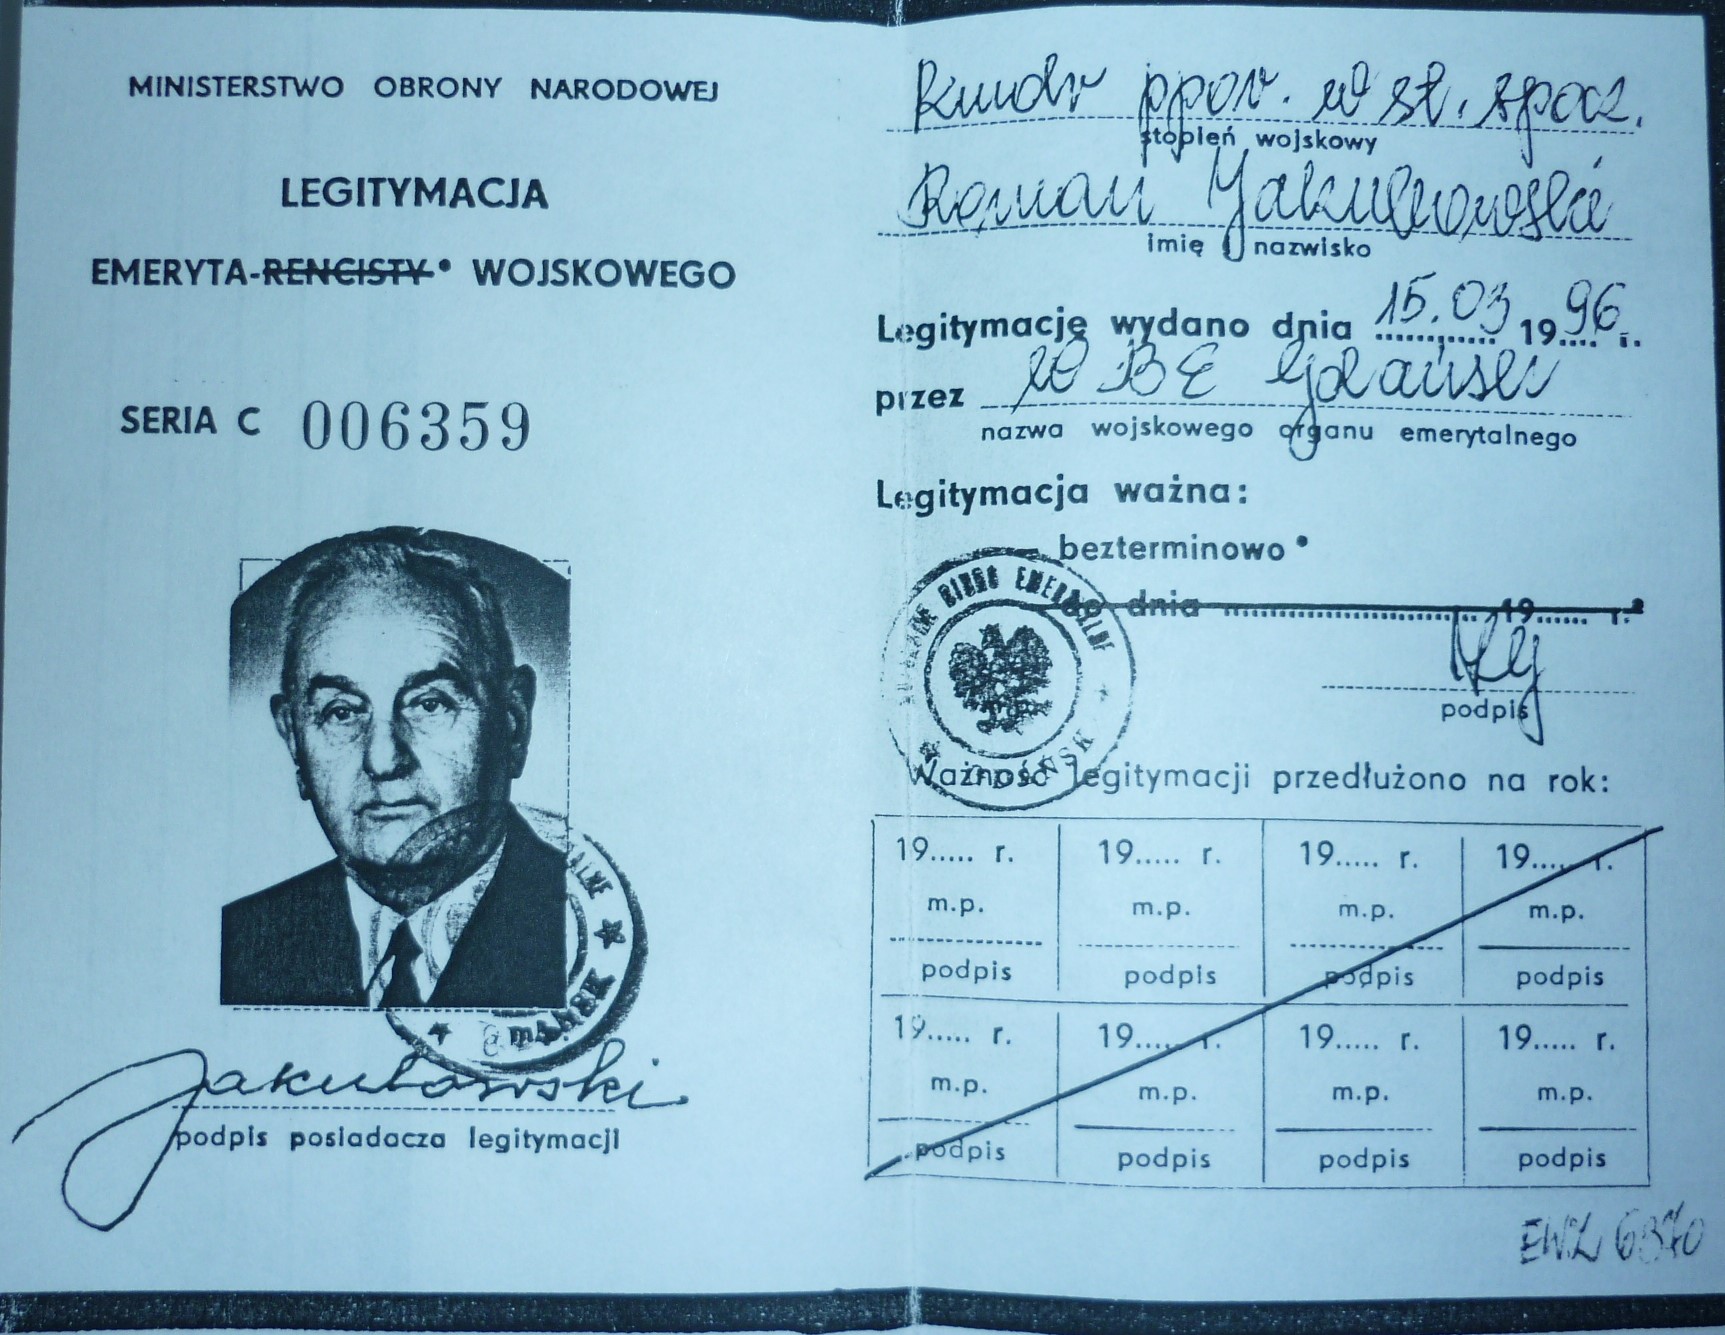 MINISTERSTWO OBRONY NARODOWEJ
LEGITYMACJA
EMERYTA-RENCISTY* WOJSKOWEGO
SERIA C 006359
ALNE
Jakubowski
podpis posiadacza legitymacji
Kmdr ppor. w st. spocz.
stopień wojskowy
Roman Jakubowski
imię i nazwisko
Legitymację wydano dnia 15.03 1996 r.
przez WBE Gdańsk
nazwa wojskowego organu emerytalnego
Legitymacja ważna:
bezterminowo*
do dnia 19 r.*
podpis
BIURO EMERYTALNE
Ważność legitymacji przedłużono na rok:
19..... r. 19..... r. 19..... r. 19..... r.
m.p. m.p. m.p. m.p.
podpis podpis podpis podpis
19..... r. 19..... r. 19..... r. 19..... r.
m.p. m.p. m.p. m.p.
podpis podpis podpis podpis